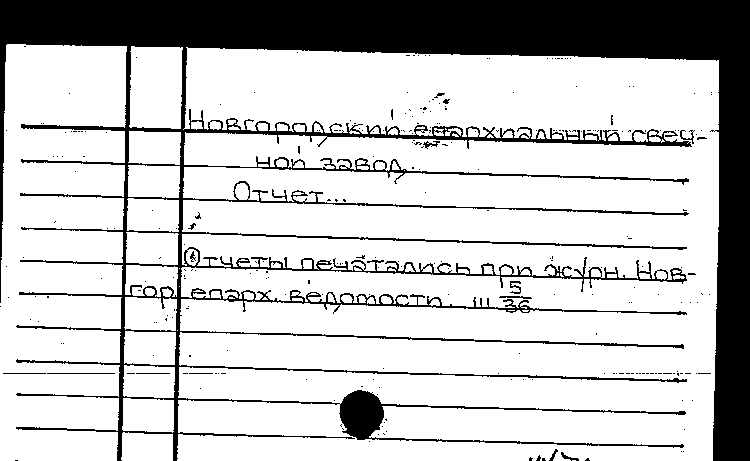 Новгородский епархиальный свеч-
ной завод.
Отчет...
Отчеты печатались при журн. Нов-
гор. епарх. ведомости. III 5/36